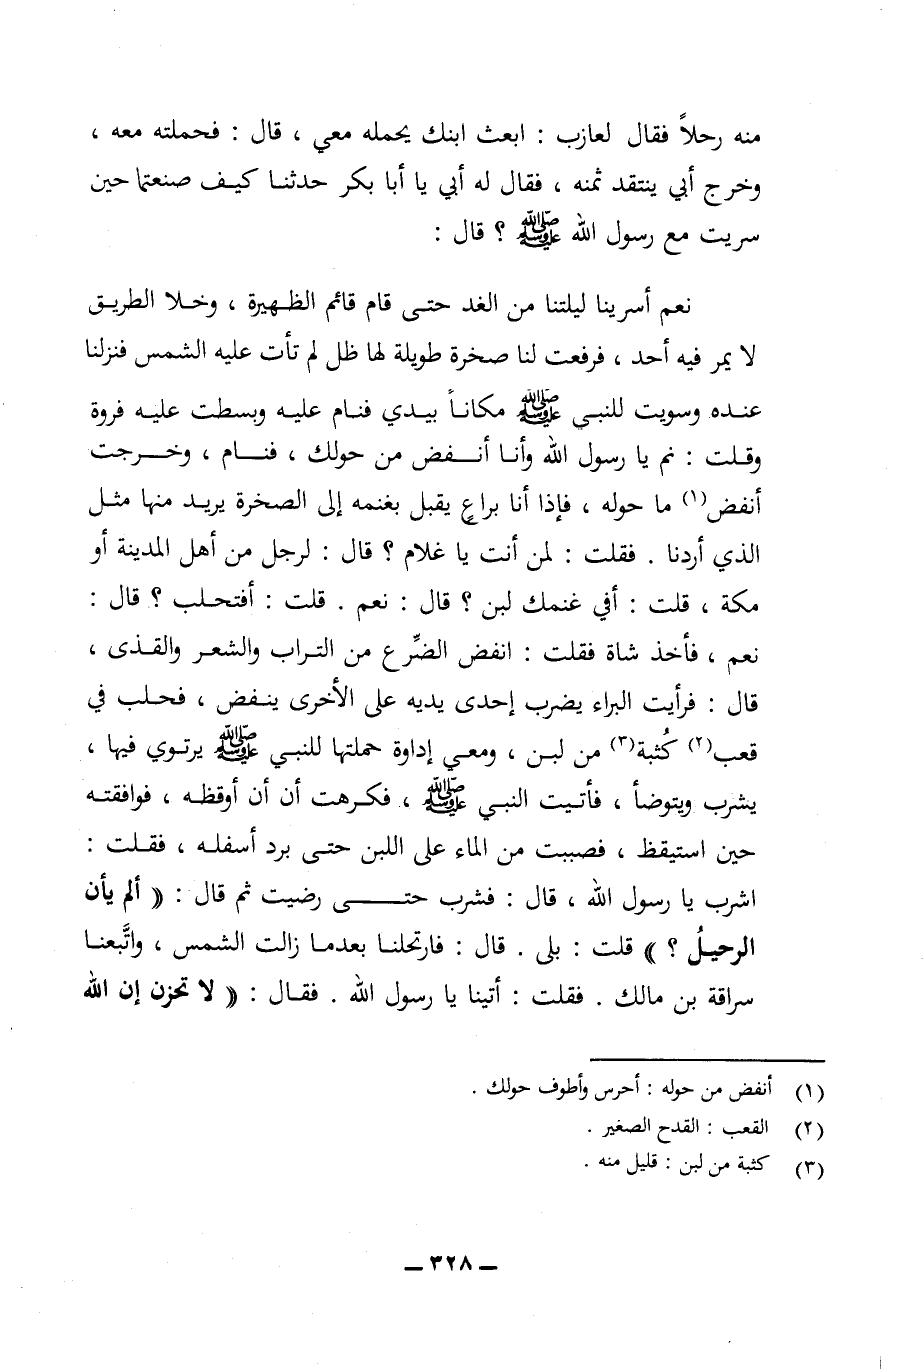 منه رحلاً فقال لعازب : ابعث ابنك يحمله معي ، قال : فحملته معه ،
وخرج أبي ينتقد ثمنه ، فقال له أبي يا أبا بكر حدثنا كيف صنعتما حين
سريت مع رسول الله ﷺ ؟ قال :
نعم أسرينا ليلتنا من الغد حتى قام قائم الظهيرة ، وخلا الطريق
لا يمر فيه أحد ، فرفعت لنا صخرة طويلة لها ظل لم تأت عليه الشمس فنزلنا
عنده وسويت للنبي ﷺ مكاناً بيدي فنام عليه وبسطت عليه فروة
وقلت : نم يا رسول الله وأنا أنفض من حولك ، فنام ، وخرجت
أنفض(١) ما حوله ، فإذا أنا براعٍ يقبل بغنمه إلى الصخرة يريد منها مثل
الذي أردنا . فقلت : لمن أنت يا غلام ؟ قال : لرجل من أهل المدينة أو
مكة ، قلت : أفي غنمك لبن ؟ قال : نعم . قلت : أفتحلب ؟ قال :
نعم ، فأخذ شاة فقلت : انفض الضِّرع من التراب والشعر والقذى ،
قال : فرأيت البراء يضرب إحدى يديه على الأخرى ينفض ، فحلب في
قعب(٢) كُثبة(٣) من لبن ، ومعي إداوة حملتها للنبي ﷺ يرتوي فيها ،
يشرب ويتوضأ ، فأتيت النبي ﷺ ، فكرهت أن أن أوقظه ، فوافقته
حين استيقظ ، فصببت من الماء على اللبن حتى برد أسفله ، فقلت :
اشرب يا رسول الله ، قال : فشرب حتى رضيت ثم قال : « ألم يأن
الرحيلُ ؟ » قلت : بلى . قال : فارتحلنا بعدما زالت الشمس ، واتَّبعنا
سراقة بن مالك . فقلت : أتينا يا رسول الله . فقال : « لا تحزن إن الله
(١) أنفض من حوله : أحرس وأطوف حولك .
(٢) القعب : القدح الصغير .
(٣) كثبة من لبن : قليل منه .
ـ ٣٢٨ ـ